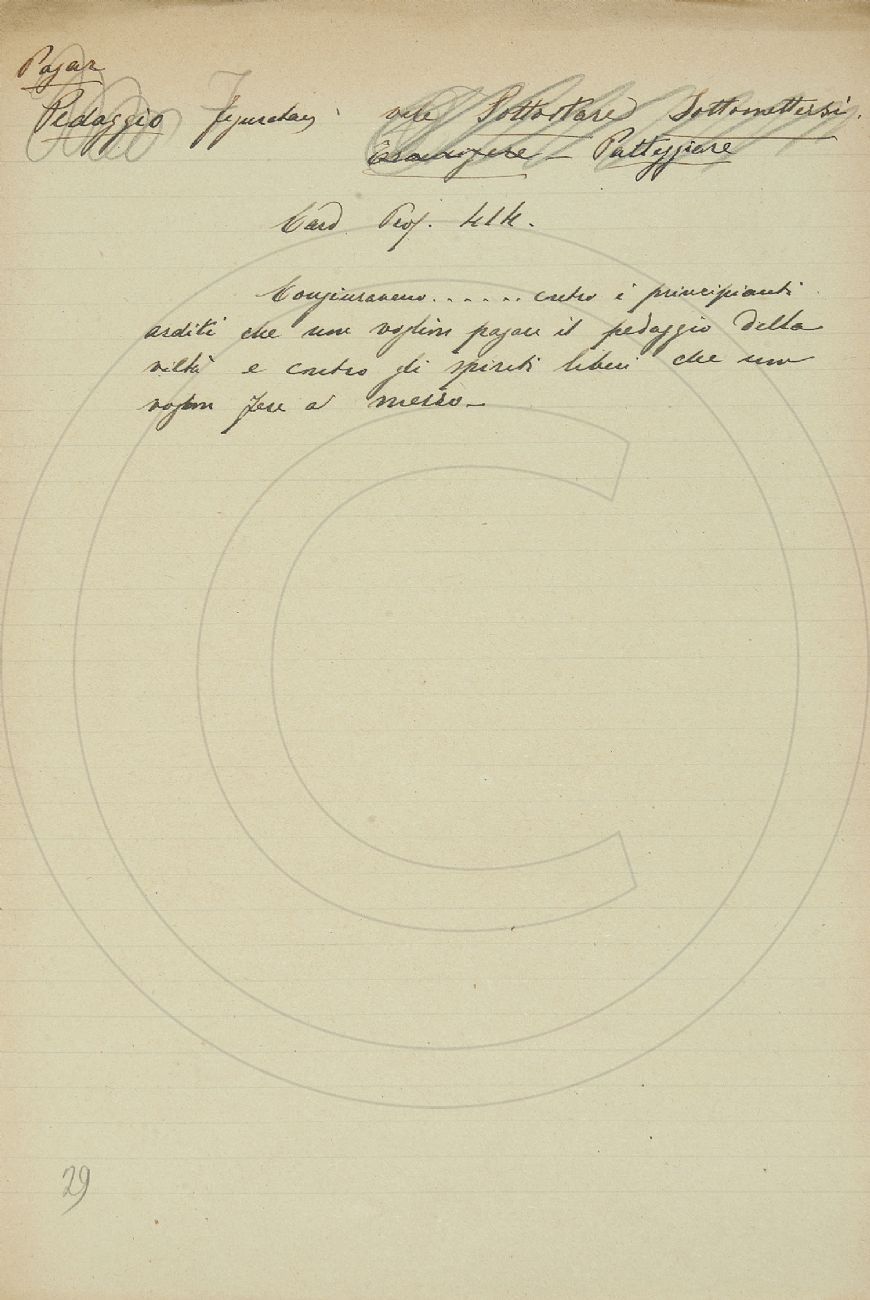 Pagar
Pedaggio figuratam vale Sottostare Sottomettersi.
Transigere – Patteggiare
Card. Pros. 414.
Congiuravano...... contro i principianti
arditi che non voglion pagare il pedaggio della
viltà e contro gli spiriti liberi che non
voglion fare a mezzo –
29